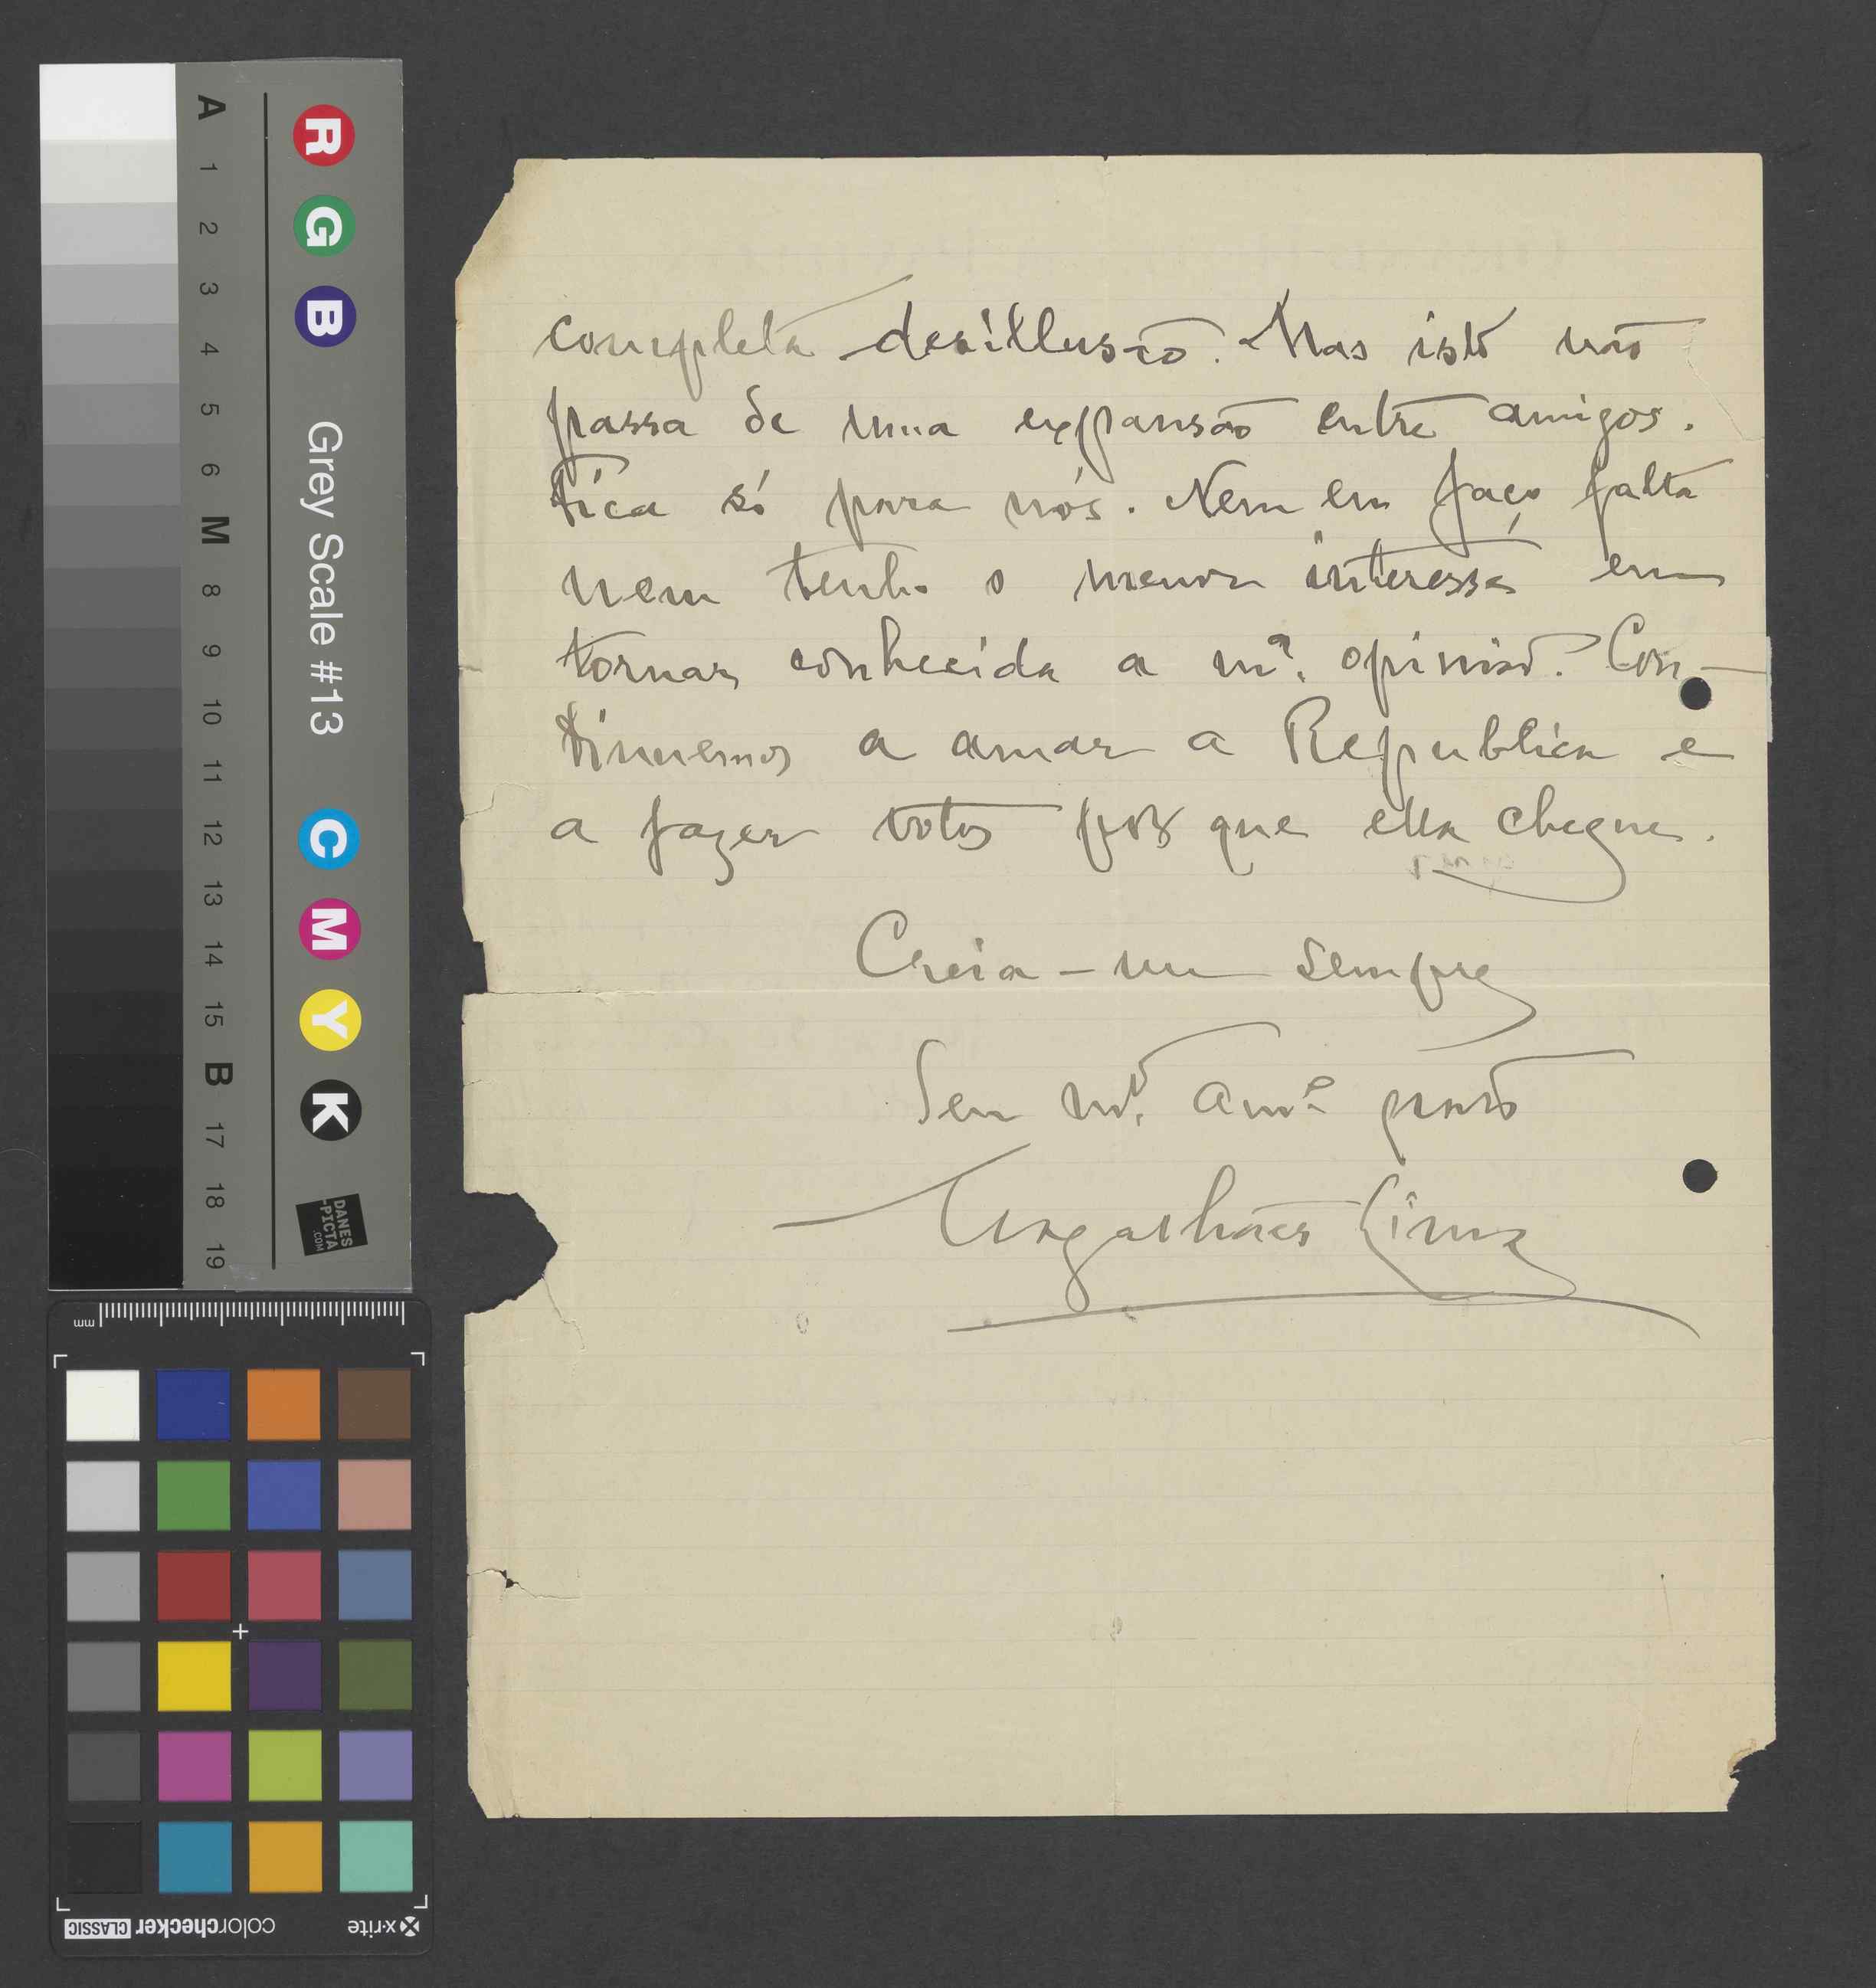 completa desillusão. Mas isto não
passa de uma expansão entre amigos.
Fica só para nós. Nem eu faço falta
nem tenho o menor interesse em
tornar conhecida a mª. opinião. Con-
tinuemos a amar a Republica e
a fazer votos por que ella chegue.
Creia-me sempre
Seu mtº. amº grato
Magalhães Lima
A 1 2 3 4 5 6 M 8 9 10 11 12 13 14 15 B 17 18 19
R G B Grey Scale #13 C M Y K
DANES
-PICTA
.COM
mm
x-rite colorchecker CLASSIC